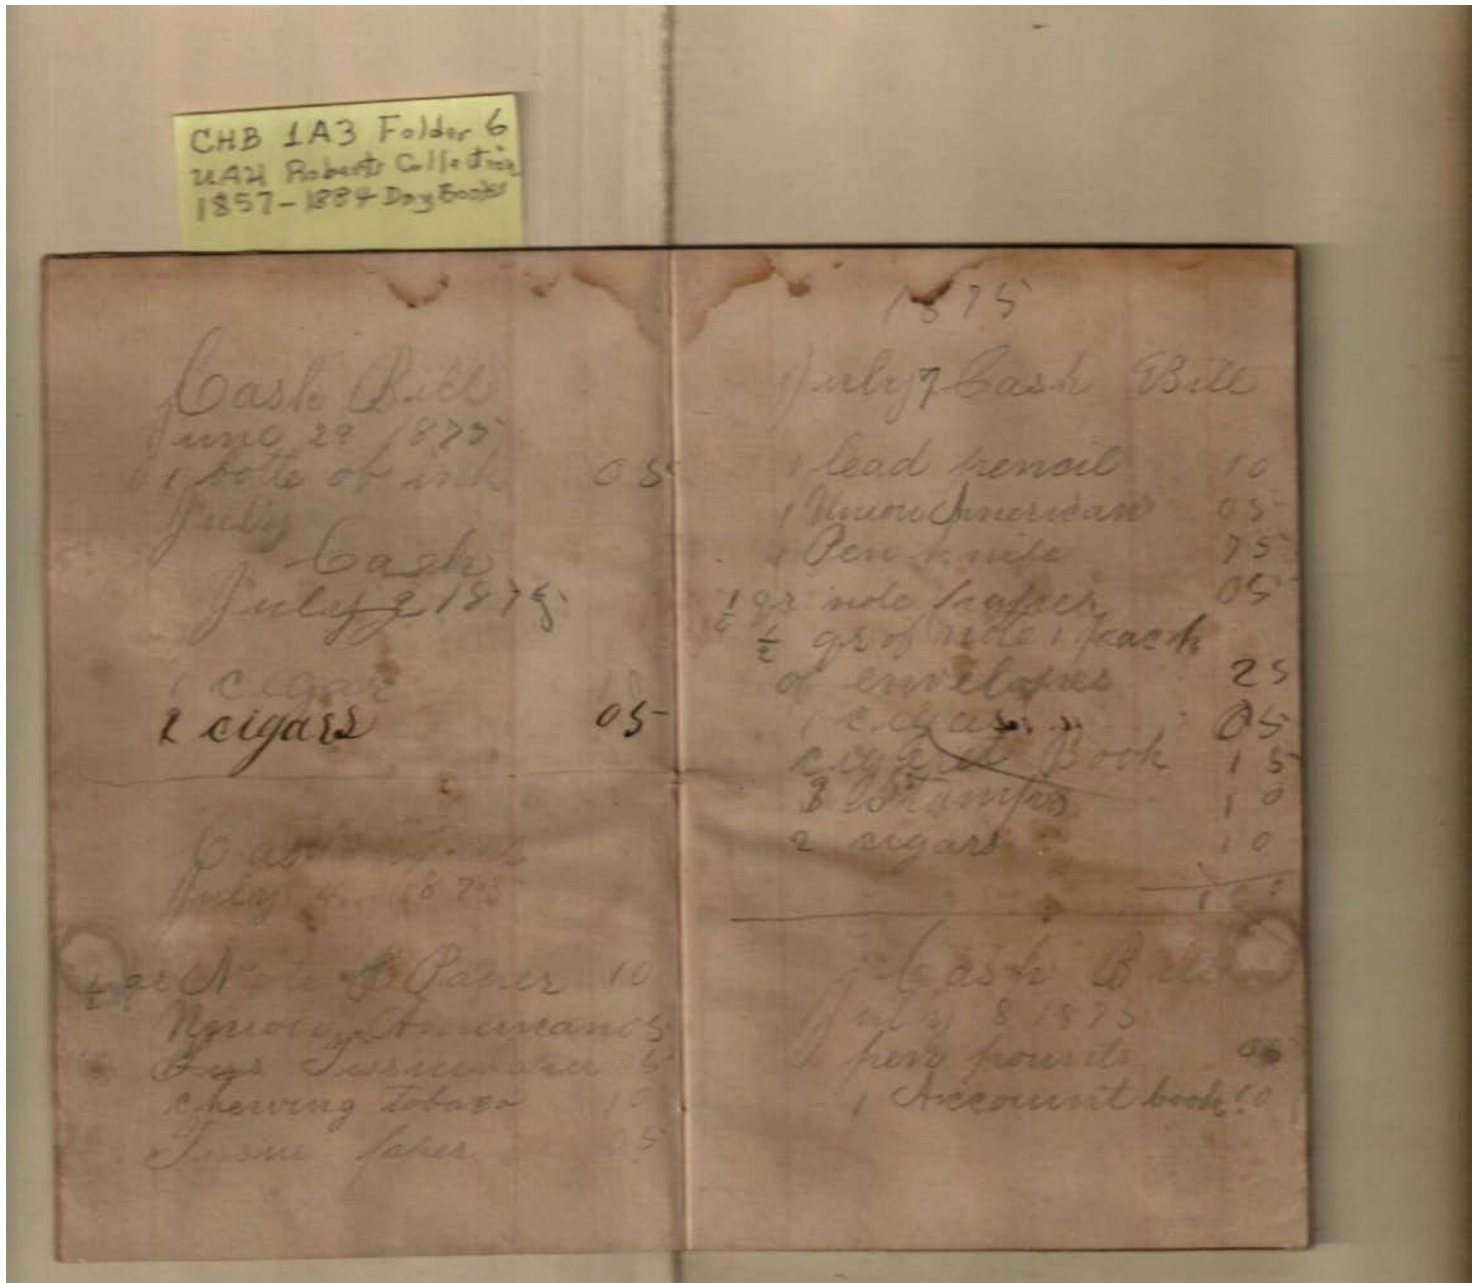 CHB 1A3 Folder 6
UAH Roberts Collection
1857-1884 Day Books
Cash Bill
June 29 1875
1 botte of ink 05
July
Cash
July 2 1875
1 cigar 10
2 cigars 05
Cash
July 1875
Note Paper 10
American 05
5
chewing tobaco 10
Tissue paper 05
1875
July 7 Cash Bill
1 lead pencil 10
1 Union American 05
1 Pen knife 75
qr note paper 05
1/2 qr of note 1 pack
of envelopes 25
1 cigar 05
Book 15
3 Stamps 10
2 cigars 10
Cash Bill
July 8 1875
pen points 05
1 Account book 10